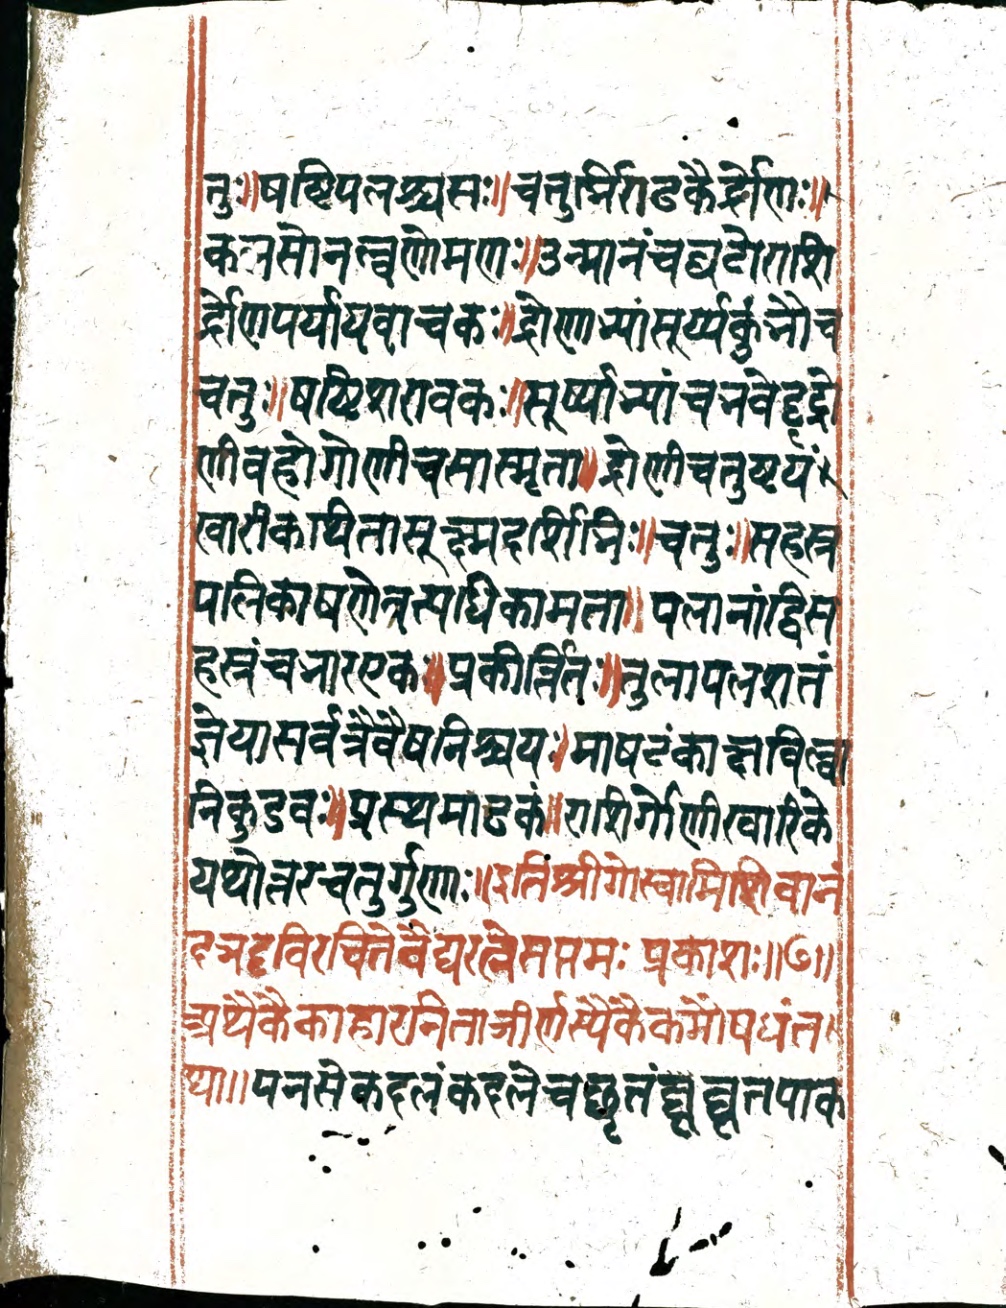 तुः॥षष्टिपलश्चसः॥चतुर्भिराढकैर्द्रोणः॥
कलसोनल्वणोमणः॥उन्मानंचघटोराशि
र्द्रोणपर्यायवाचकः॥द्रोणाभ्यांसूर्य्यकुंभौच
चतुः॥षष्टिशरावकः॥सूर्प्पाभ्यांचभवेद्द्रो
णीवहोगोणीचसास्मृता॥द्रोणीचतुष्टयं
खारीकथितासूक्ष्मदर्शिभिः॥चतुः॥सहस्र
पलिकाषणोवत्यधिकामता॥पलानांद्विस
हस्रंचभारएकः॥प्रकीर्त्तितः॥तुलापलशतं
ज्ञेयासर्वत्रैवैषनिश्चयः॥माषटंकाक्षविल्वा
निकुडवः॥प्रस्थमाढकं॥राशिर्गोणीखारिके
यथोत्तरचतुर्गुणः॥इतिश्रीगोस्वामिशिवानं
दभट्टविरचितेवैद्यरत्नेसप्तमः प्रकाशः॥७॥
अथैकैकाहारजनिताजीर्णस्यैकैकमौषधंत
था॥पनसेकदलंकदलेचघृतंघृतपाक